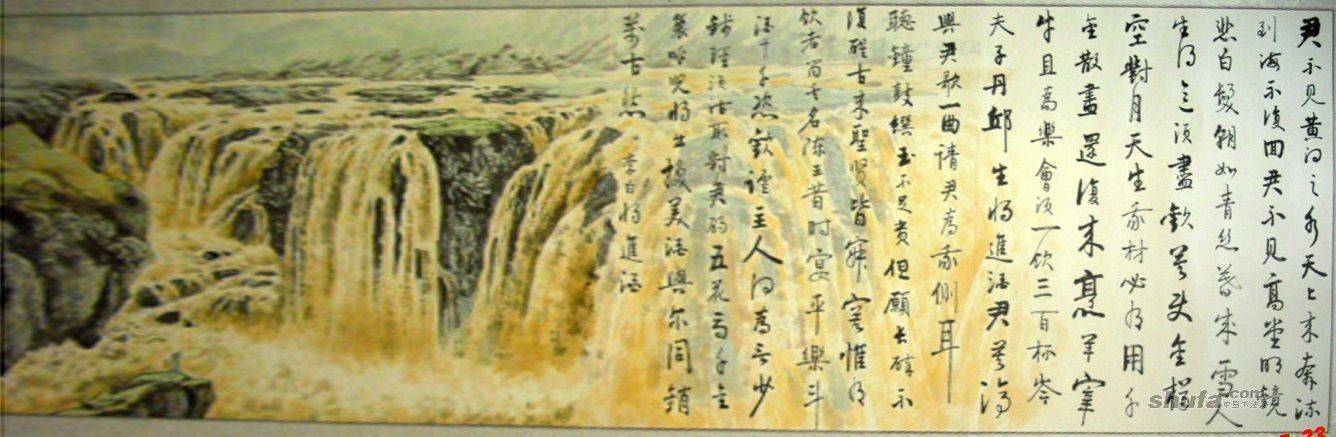 君不见黄河之水天上来奔流
到海不復回君不见高堂明鏡
悲白髮朝如青丝暮成雪人
生得意须盡歡莫使金樽
空對月天生我材必有用千
金散盡還復来烹羊宰
牛且為樂會须一饮三百杯岑
夫子丹邱生将進酒君莫停
與君歌一曲請君為我側耳
聽鐘鼓饌玉不足贵但願長醉不
復醒古来聖贤皆寂寞惟有
饮者留其名陈王昔时宴平樂斗
酒十千恣歡謔主人何為言少
錢徑须沽取對君酌五花馬千金
裘呼兒将出换美酒與尔同銷
萬古愁 李白将進酒
shufa.com